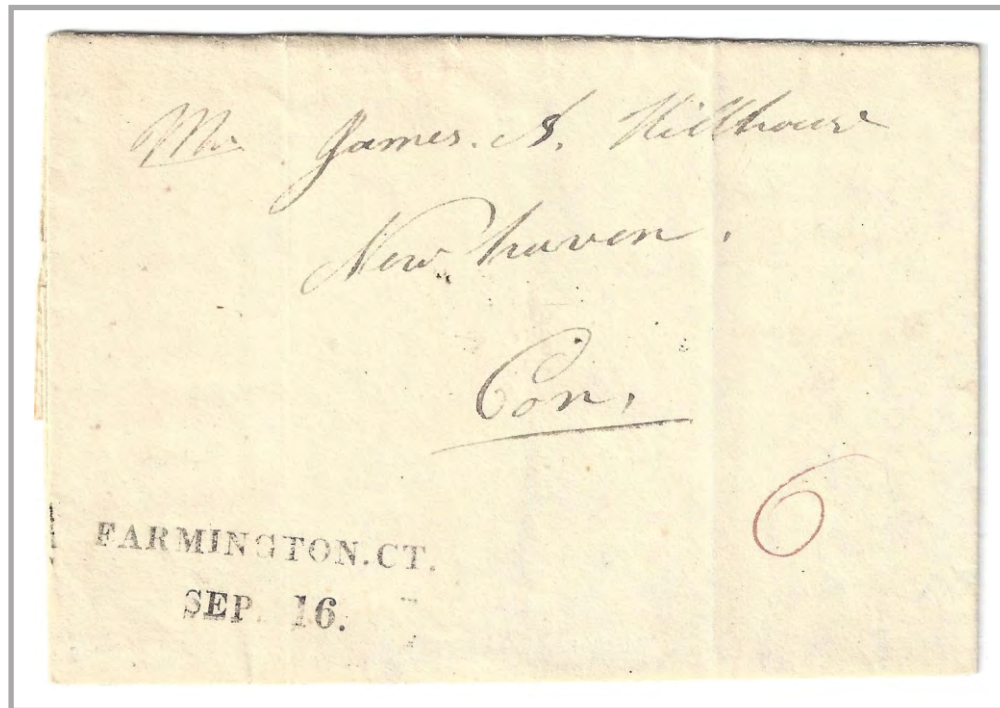 Mr. James. A. Hillhouse
New haven.
Con,
6
FARMINGTON.CT.
SEP. 16.